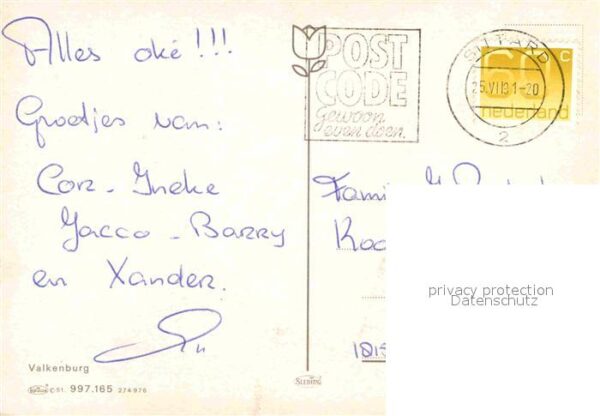 Alles oké!!!
Groetjes van:
Cor - Ineke
Jacco - Barry
en Xander.
Valkenburg
C st. 997.165 274976
POST
CODE
Gewoon
even doen.
SITTARD
25.VII.81-20
2
60 C
nederland
Kaa
1815
privacy protection
Datenschutz